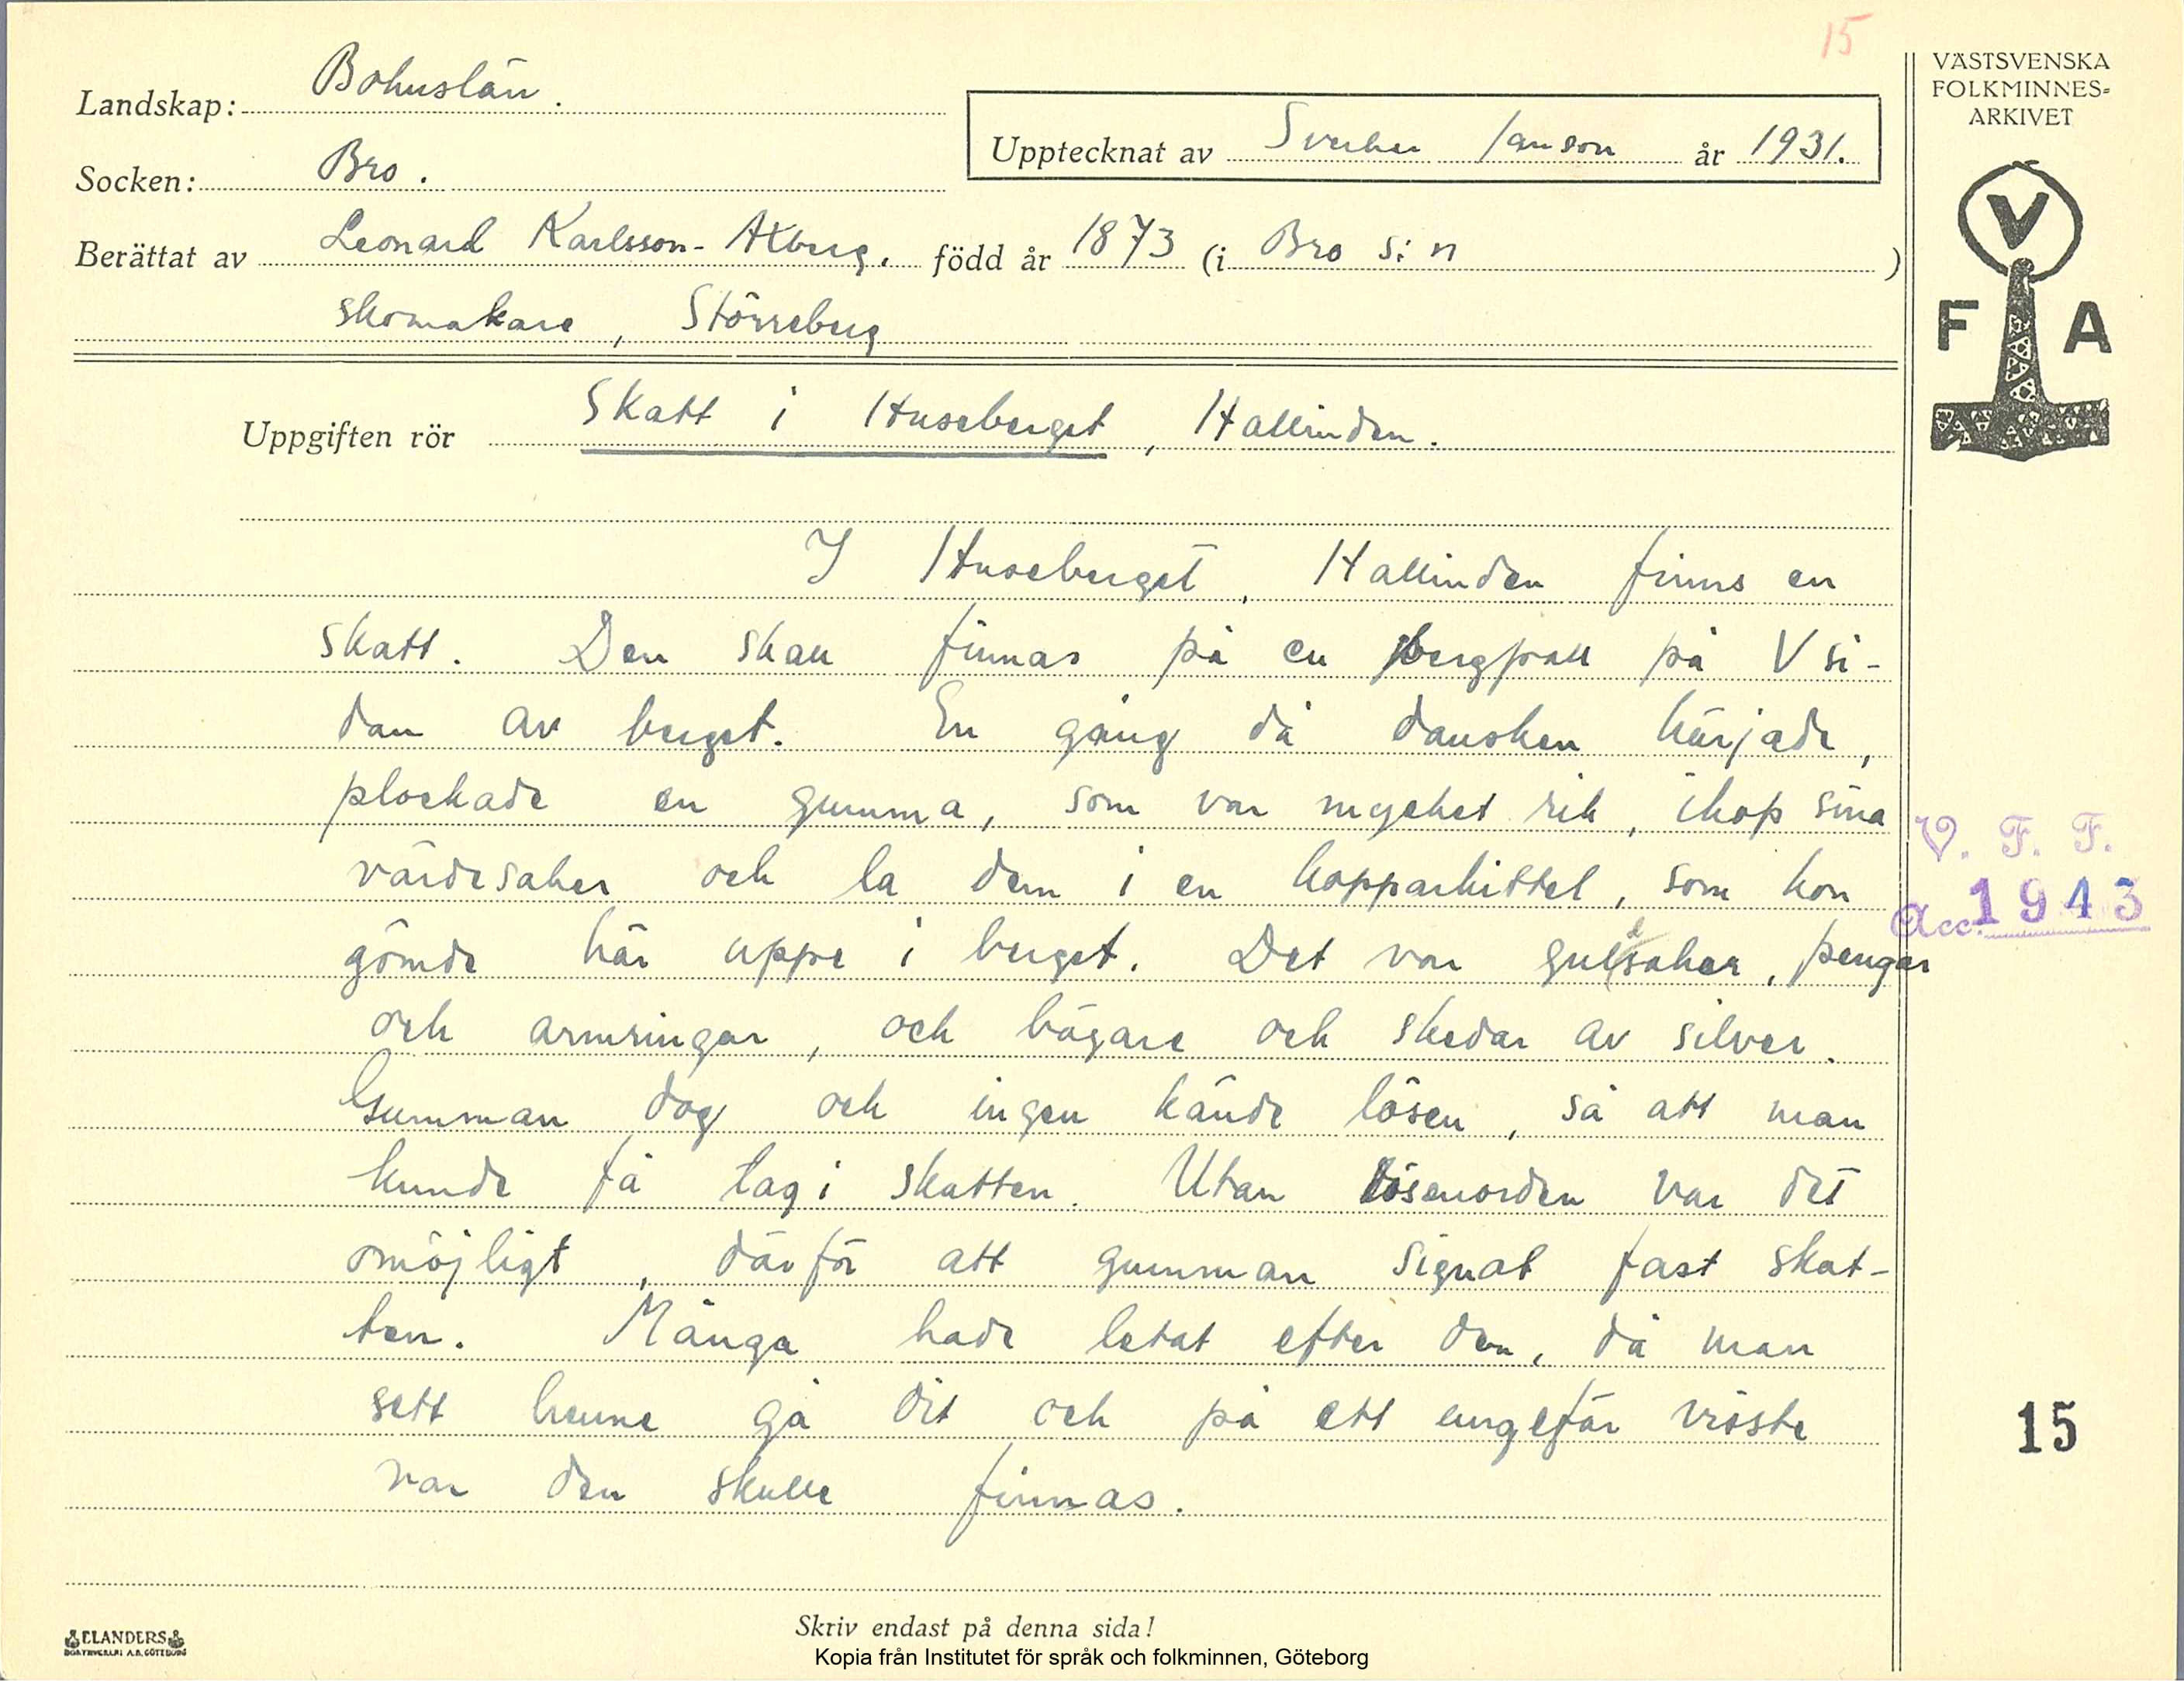 15
VÄSTSVENSKA
FOLKMINNES=
ARKIVET
Landskap: Bohuslän.
Upptecknat av Sverker Janson år 1931.
Socken: Bro.
Berättat av Leonard Karlsson- Åberg. född år 1873 (i Bro s:n )
skomakare, Störreberg
V
F A
Uppgiften rör Skatt i Huseberget, Hallinden.
I Huseberget, Hallinden finns en
skatt. Den skall finnas på en bergpall på V si-
dan av berget. En gång då dansken härjade,
plockade en gumma, som var mycket rik, ihop sina
värdesaker och la dem i en kopparkittel, som hon
gömde här uppe i berget. Det var guldsaker, pengar
och armringar, och bägare och skedar av silver.
Gumman dog och ingen kände lösen, så att man
kunde få tag i skatten. Utan lösenorden var det
omöjligt, därför att gumman signat fast skat-
ten. Många hade letat efter den, då man
sett henne gå dit och på ett ungefär visste
var den skulle finnas.
V. F. F.
Acc. 1943
15
Skriv endast på denna sida!
ELANDERS
BOKTRYCKERI A.B. GÖTEBORG
Kopia från Institutet för språk och folkminnen, Göteborg